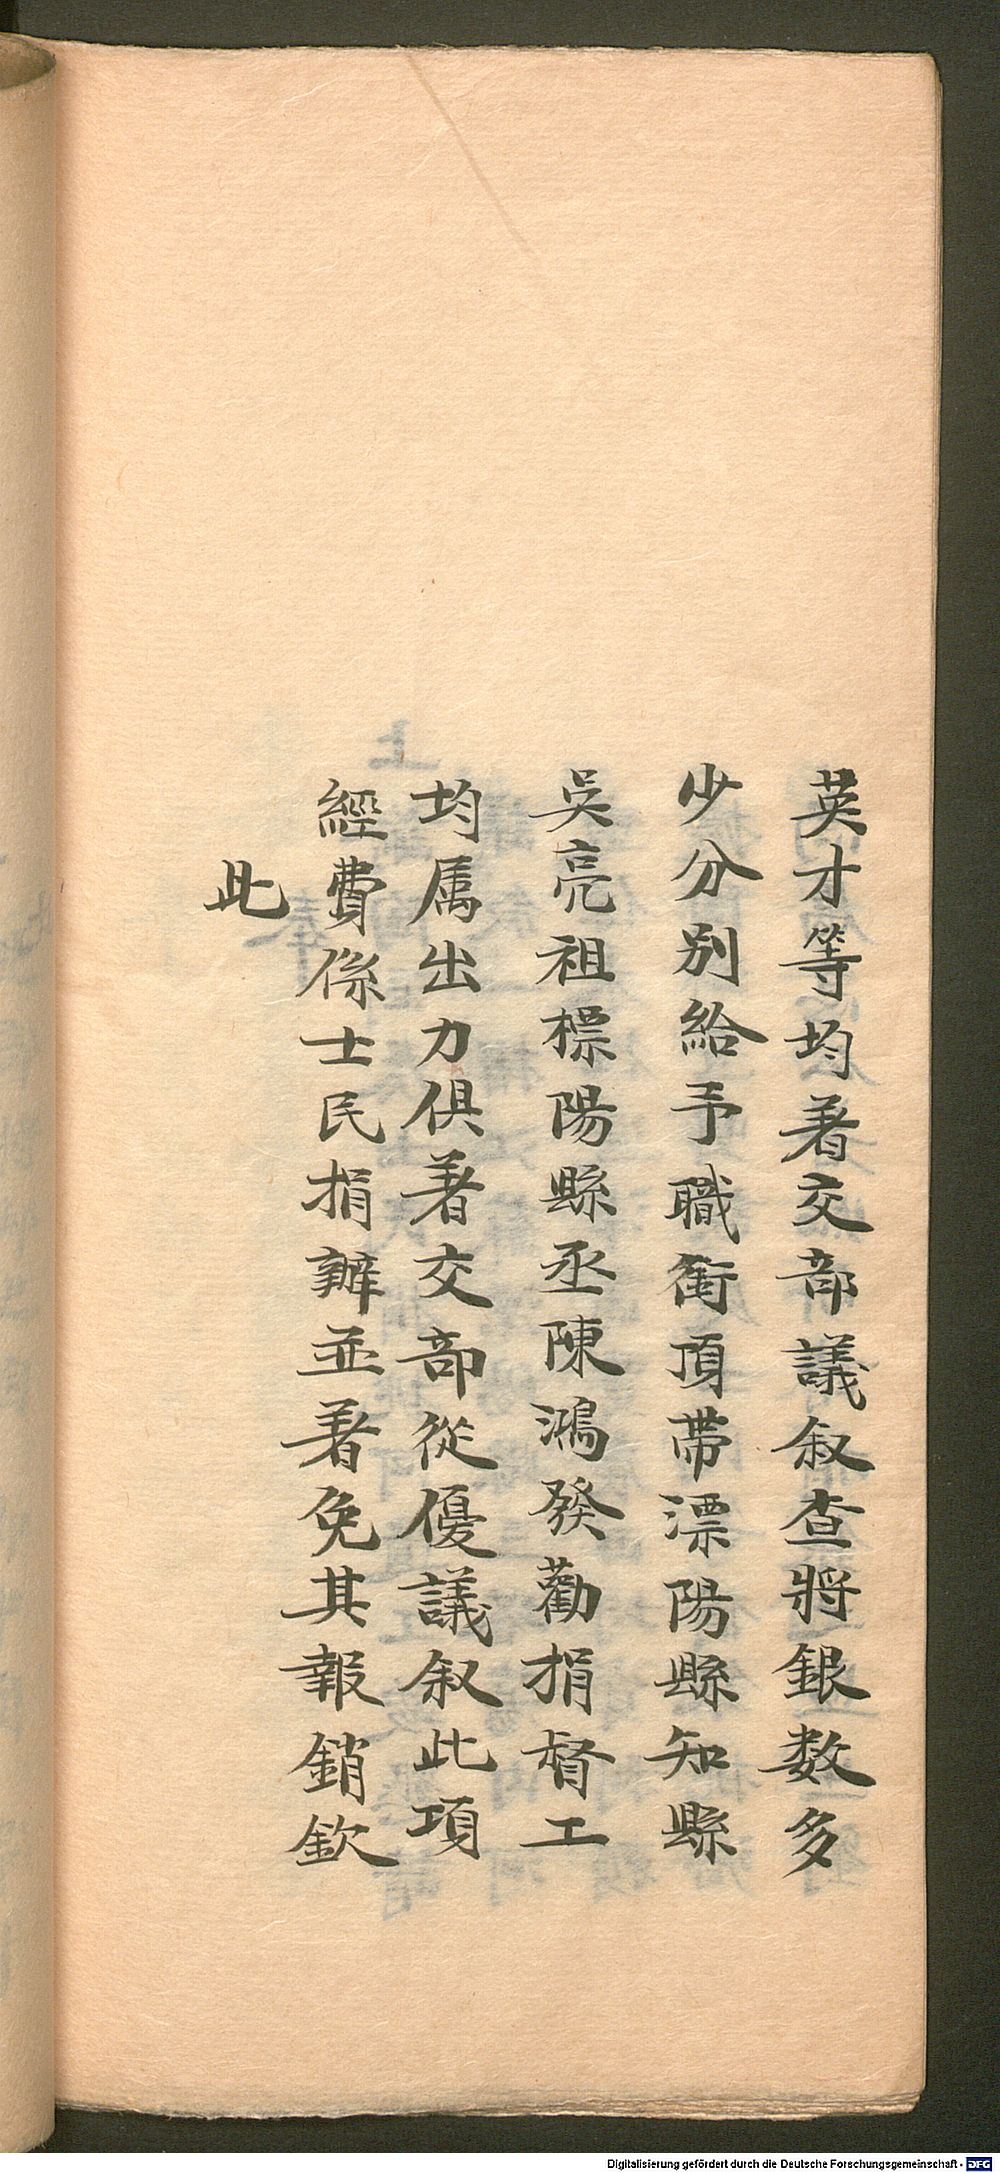 英才等均著交部議叙查將銀数多
少分别給予職銜頂帶漂陽縣知縣
吳亮祖標陽縣丞陳鴻發勸捐督工
均属出力俱著交部從優議叙此項
經費係士民捐辦並著免其報銷欽
此
Digitalisierung gefördert durch die Deutsche Forschungsgemeinschaft - DFG